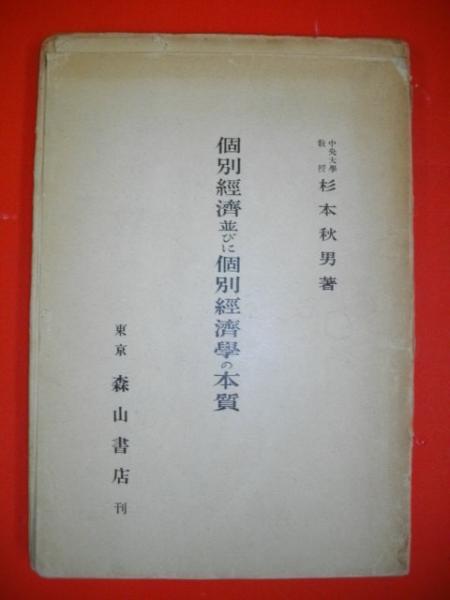 中央大學
教授
杉本秋男著
個別經濟並びに個別經濟學の本質
東京 森山書店 刊